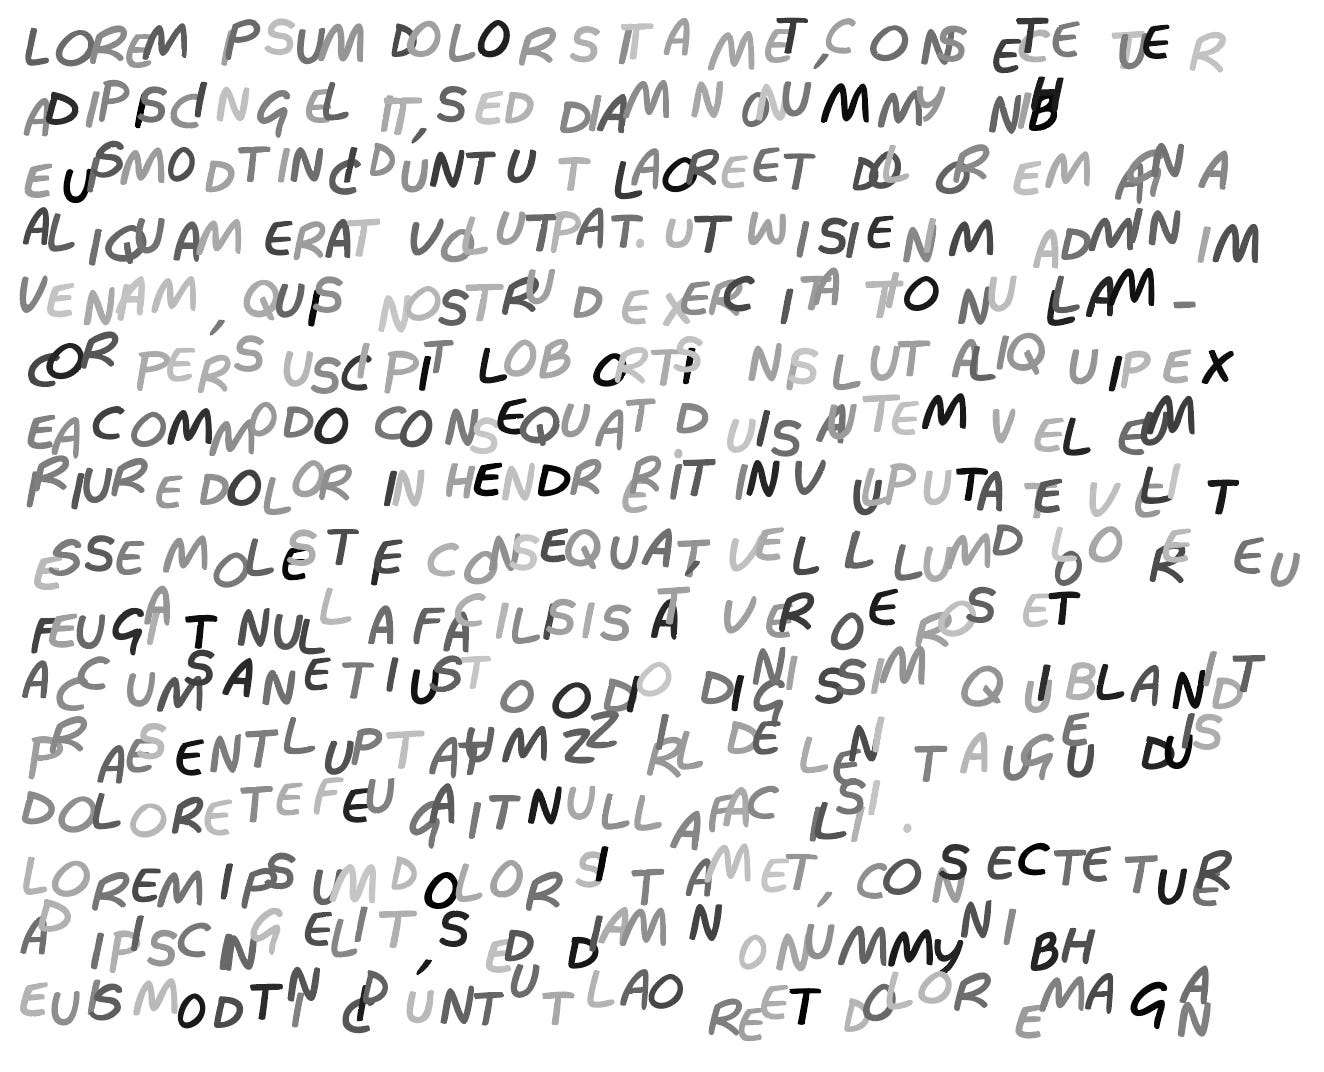 LOREM IPSUM DOLOR SIT AMET, CONSECTETUER
ADIPISCING ELIT, SED DIAM NONUMMY NIBH
EUISMOD TINCIDUNT UT LAOREET DOLORE MAGNA
ALIQUAM ERAT VOLUTPAT. UT WISI ENIM AD MINIM
VENIAM, QUIS NOSTRUD EXERCI TATION ULLAM-
CORPER SUSCIPIT LOBORTIS NISL UT ALIQUIP EX
EA COMMODO CONSEQUAT. DUIS AUTEM VEL EUM
IRIURE DOLOR IN HENDRERIT IN VULPUTATE VELIT
ESSE MOLESTIE CONSEQUAT, VEL ILLUM DOLORE EU
FEUGIAT NULLA FACILISIS AT VERO EROS ET
ACCUMSAN ET IUSTO ODIO DIGNISSIM QUI BLANDIT
PRAESENT LUPTATUM ZZRIL DELENIT AUGUE DUIS
DOLORE TE FEUGAIT NULLA FACILISI.
LOREM IPSUM DOLOR SIT AMET, CONSECTETUER
ADIPISCING ELIT, SED DIAM NONUMMY NIBH
EUISMOD TINCIDUNT UT LAOREET DOLORE MAGNA